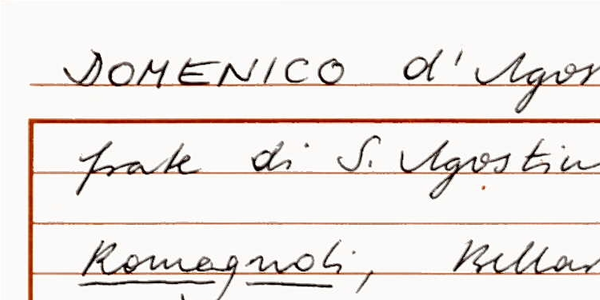 DOMENICO d'Agos
frate di S. Agostin
Romagnoli, Bellar